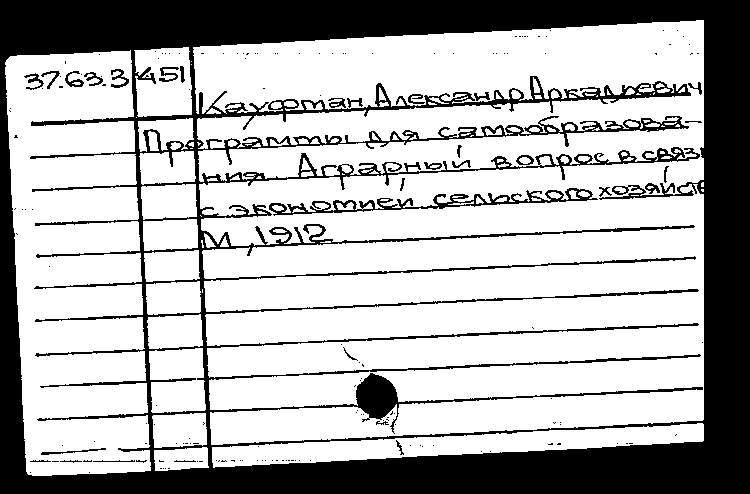 37.63.3 451
Кауфман, Александр Аркадьевич
Программы для самообразова-
ния. Аграрный вопрос в связи
с экономией сельского хозяйств
М, 1912